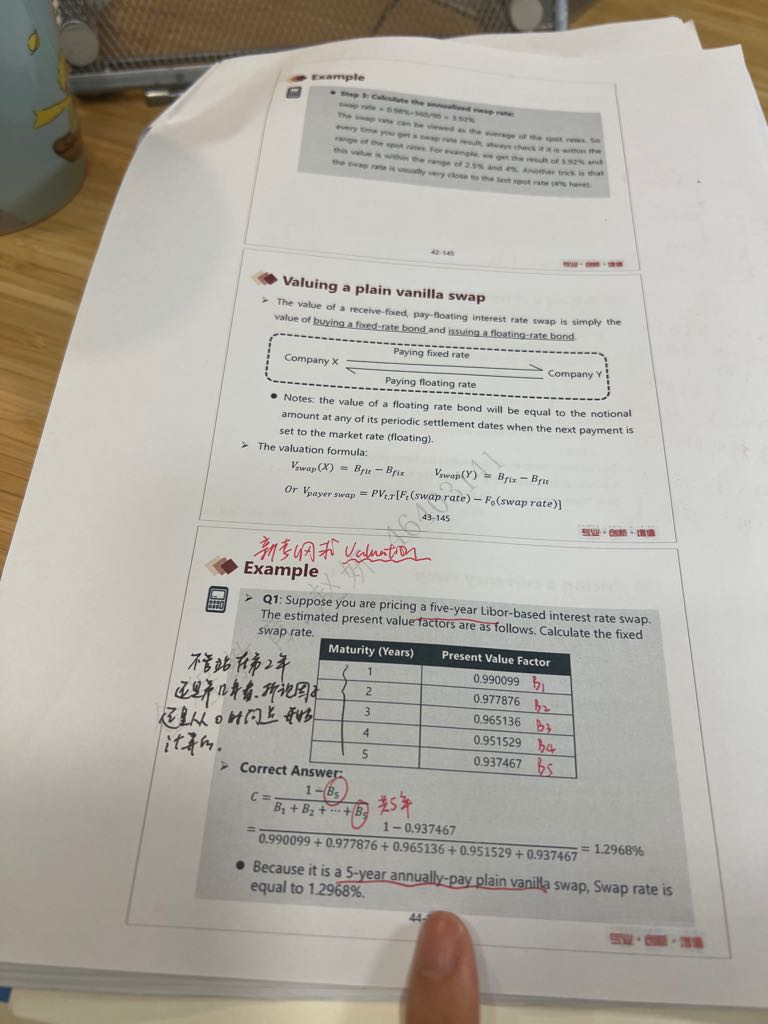 Example
● Step 3: Calculate the annualized swap rate:
swap rate = 0.98%×360/90 = 3.92%
The swap rate can be viewed as the average of the spot rates. So
every time you get a swap rate result, always check if it is within the
range of the spot rates. For example, we get the result of 3.92% and
this value is within the range of 2.5% and 4%. Another trick is that
the swap rate is usually very close to the last spot rate (4% here).
42-145
专业·创新·增值
Valuing a plain vanilla swap
➢ The value of a receive-fixed, pay-floating interest rate swap is simply the
value of buying a fixed-rate bond and issuing a floating-rate bond.
Paying fixed rate
Company X
Company Y
Paying floating rate
● Notes: the value of a floating rate bond will be equal to the notional
amount at any of its periodic settlement dates when the next payment is
set to the market rate (floating).
➢ The valuation formula:
Vswap(X) = Bflt − Bfix Vswap(Y) = Bfix − Bflt
Or Vpayer swap = PVt,T[Ft(swap rate) − F0(swap rate)]
43-145
专业·创新·增值
新考纲求 Valuation
Example
➢ Q1: Suppose you are pricing a five-year Libor-based interest rate swap.
The estimated present value factors are as follows. Calculate the fixed
swap rate.
Maturity (Years) Present Value Factor
1 0.990099 B1
2 0.977876 B2
3 0.965136 B3
4 0.951529 B4
5 0.937467 B5
不管站在第2年
还是从0时间点开始
计算的.
➢ Correct Answer:
C = 1−B5 / B1 + B2 + ⋯ + B5 共5年
= 1 − 0.937467 / 0.990099 + 0.977876 + 0.965136 + 0.951529 + 0.937467 = 1.2968%
● Because it is a 5-year annually-pay plain vanilla swap, Swap rate is
equal to 1.2968%.
44-
专业·创新·增值